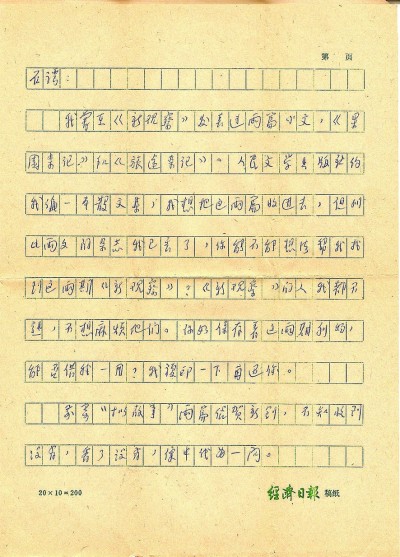 第 页
石湾:
我曾在《新观察》发表过两篇小文,《果
园杂记》和《旅途杂记》。人民文学出版社约
我编一本散文集,我想把这两篇收进去,但刊
此两文的杂志我已丢了,你能不能想法帮我找
到这两期《新观察》?《新观察》的人我都不
熟,不想麻烦他们。你如保存着这两期刊物,
能否借我一用?我複印一下再还你。
寄“拟故事”两篇给贺新创,不知收到
没有,看了没有,便中代为一问。
20×10=200 經濟日報 稿纸